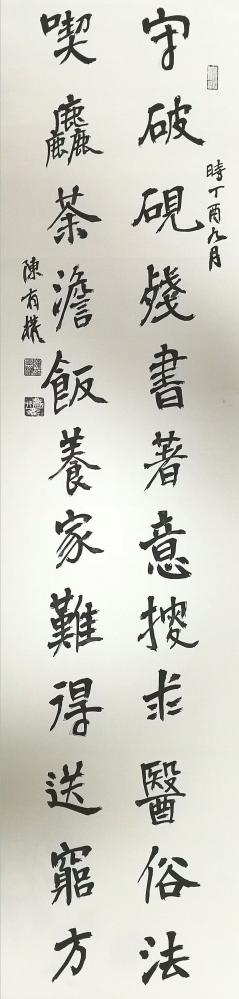 時丁酉九月
守破硯殘書著意搜求醫俗法
喫麤茶澹飯養家難得送窮方
陳有